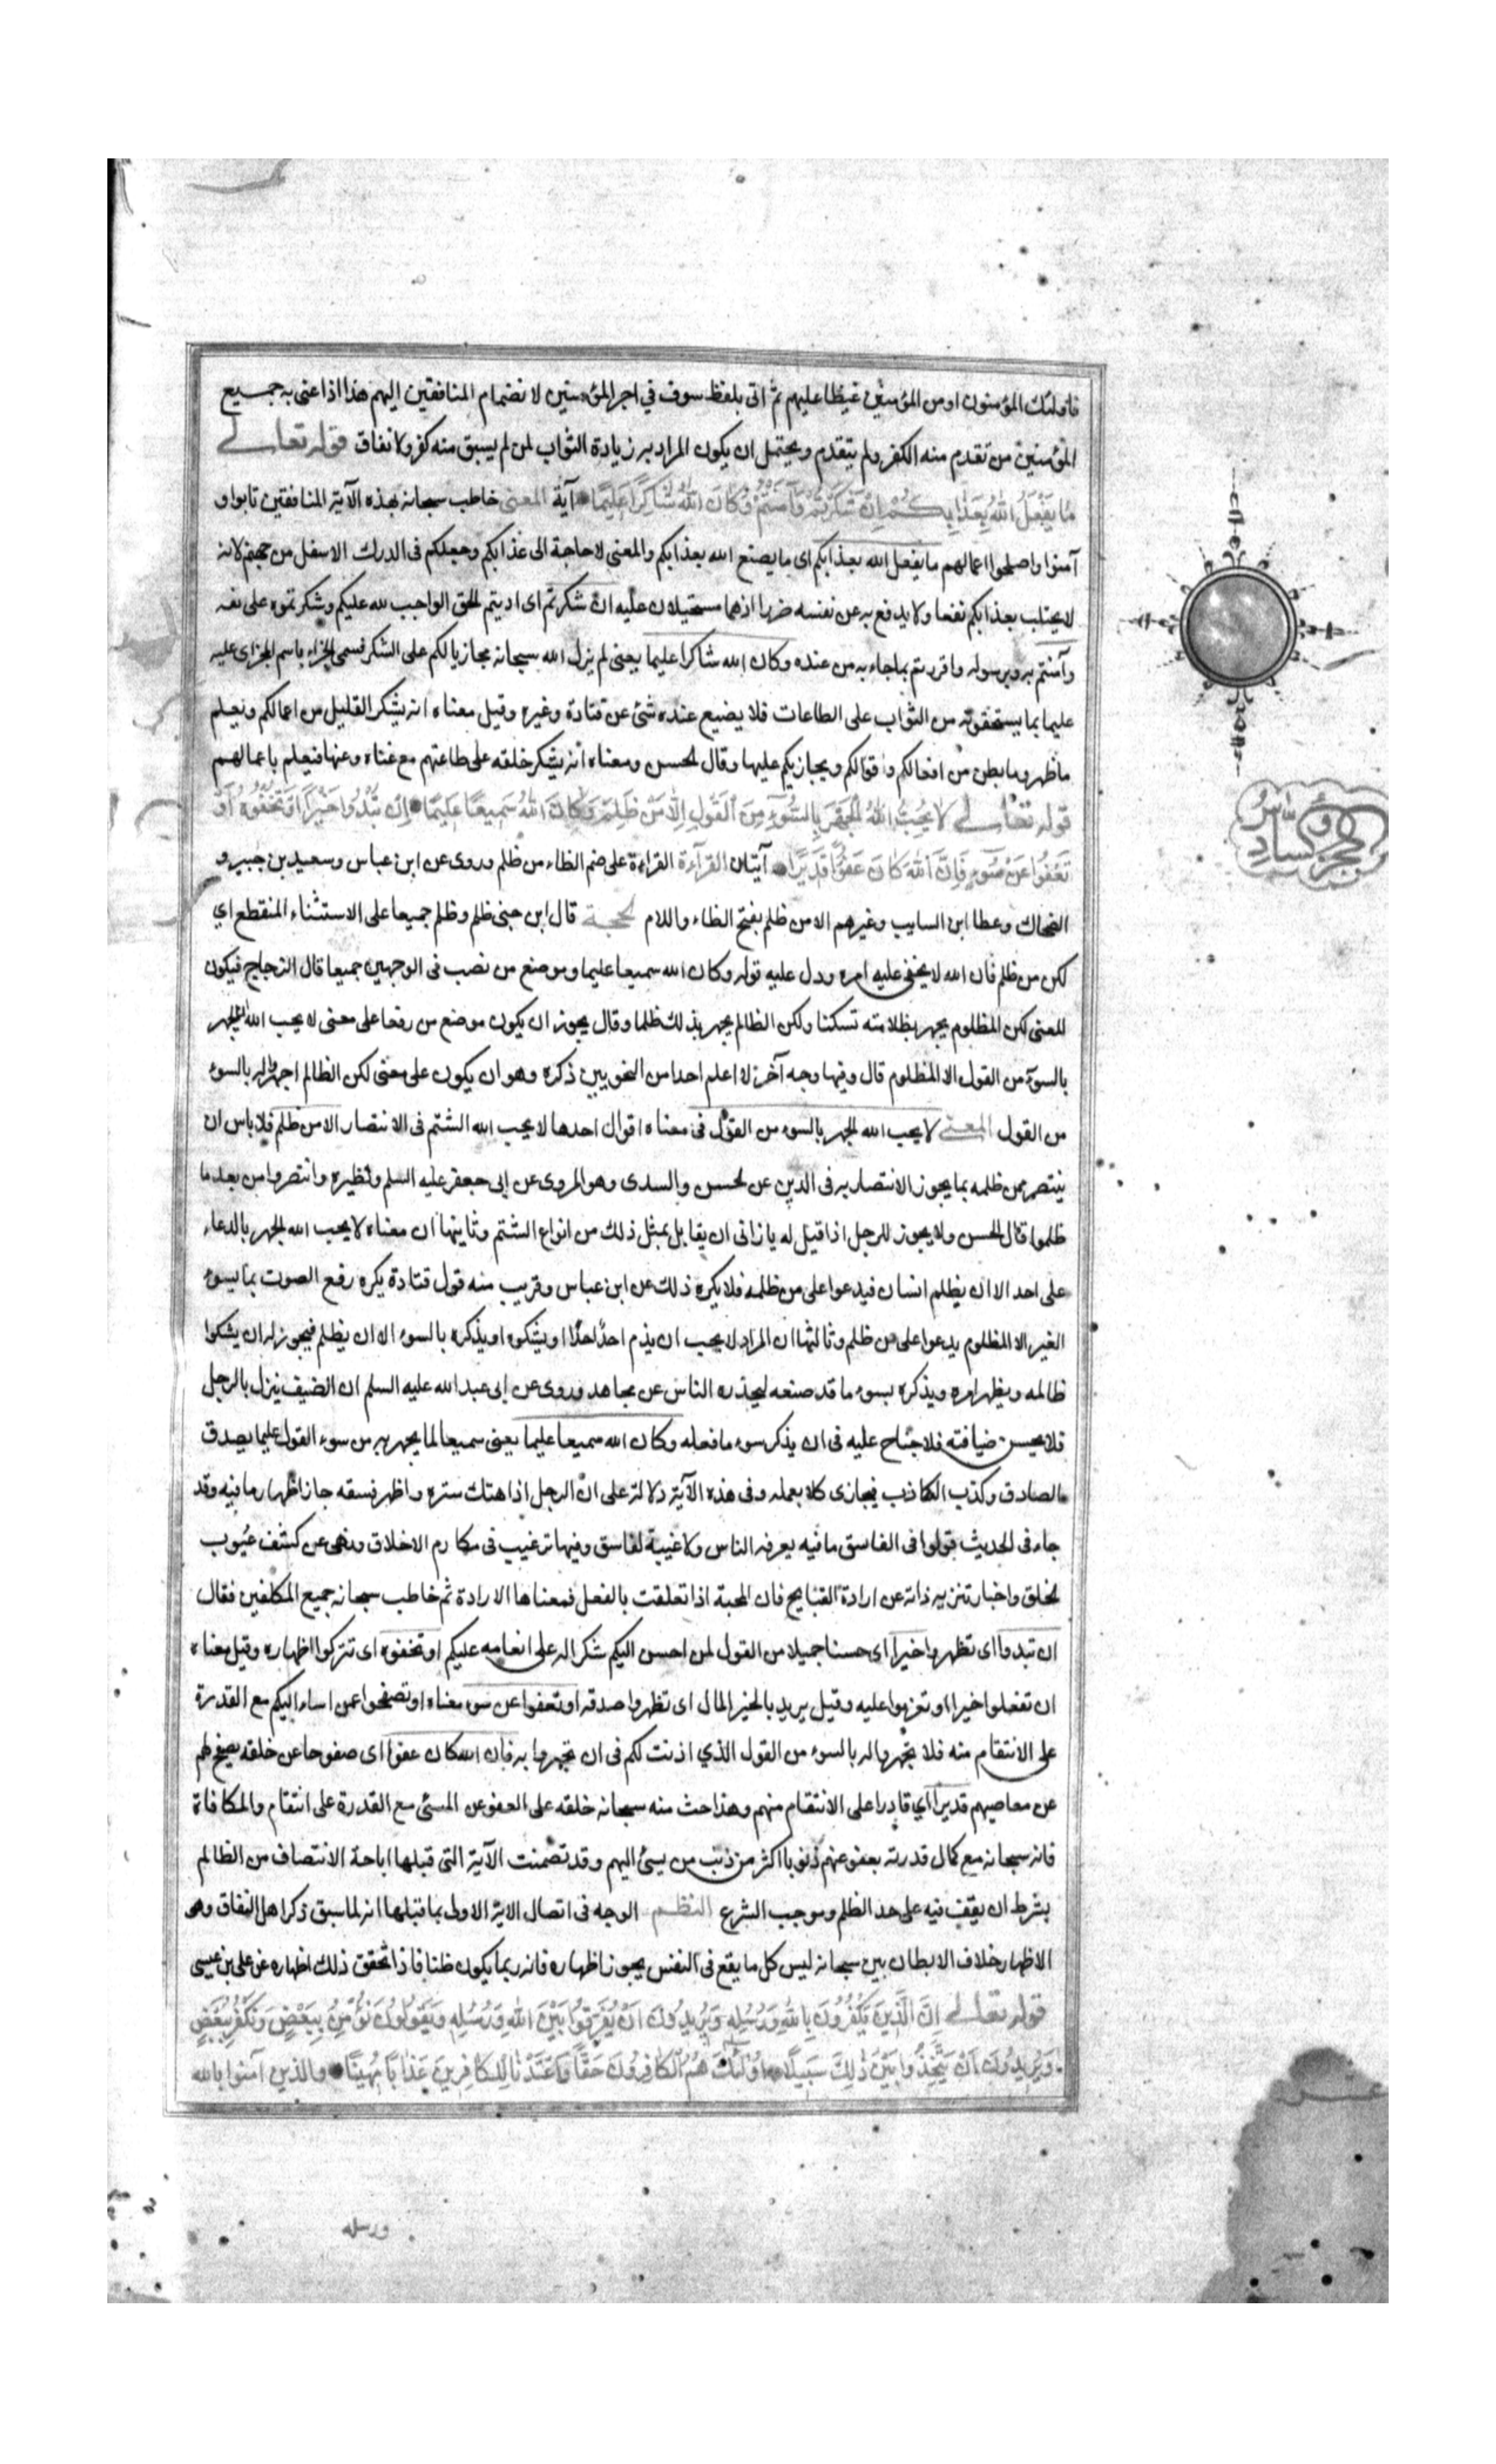 فاولئك المؤمنون او من المؤمنين غيظا عليهم ثم اتى بلفظ سوف في اجر المؤمنين لانضمام المنافقين اليهم هذا اذا عنى به جميع
المؤمنين من تقدم منه الكفر ولم يتقدم ويحتمل ان يكون المراد به زيادة الثواب لمن لم يسبق منه كفر ولا نفاق قوله تعالى
مَا يَفْعَلُ اللهُ بِعَذَابِكُمْ اِنْ شَكَرْتُمْ وَآمَنْتُمْ وَكَانَ اللهُ شَاكِرًا عَلِيمًا آية المعنى خاطب سبحانه بهذه الآية المنافقين تابوا و
آمنوا واصلحوا اعمالهم ما يفعل الله بعذابكم اى ما يصنع الله بعذابكم والمعنى لا حاجة الى عذابكم وجعلكم فى الدرك الاسفل من جهنم لانه
لا يجتلب بعذابكم نفعا ولا يدفع به عن نفسه ضررا اذهما مستحيلان عليه ان شكرتم اى اديتم الحق الواجب لله عليكم وشكرتموه على نعمه
وآمنتم به وبرسوله واقررتم بما جاء به من عنده وكان الله شاكرا عليما يعنى لم يزل الله سبحانه مجازيا لكم على الشكر فسمى الجزاء باسم المجزاى عليه
عليما بما يستحقونه من الثواب على الطاعات فلا يضيع عنده شئ عن قتادة وغيره وقيل معناه انه يشكر القليل من اعمالكم ويعلم
ما ظهر وما بطن من افعالكم واقوالكم ويجازيكم عليها وقال الحسن ومعناه انه يشكر خلقه على طاعتهم مع غناه وعنها فيعلم باعمالهم
قوله تعالى لا يُحِبُّ اللهُ الْجَهْرَ بِالسُّوءِ مِنَ الْقَوْلِ اِلّا مَنْ ظُلِمَ وَكَانَ اللهُ سَمِيعًا عَلِيمًا اِنْ تُبْدُوا خَيْرًا اَوْ تُخْفُوهُ اَوْ
تَعْفُوا عَنْ سُوءٍ فَاِنَّ اللهَ كَانَ عَفُوًّا قَدِيرًا آيتان القرآءة القراءة على ضم الظاء من ظلم وروى عن ابن عباس وسعيد بن جبير و
الضحاك وعطا ابن السايب وغيرهم الا من ظلم بفتح الظاء واللام الحجة قال ابن جنى ظلم وظلم جميعا على الاستثناء المنقطع اي
لكن من ظلم فان الله لا يخفى عليه امره ودل عليه قوله وكان الله سميعا عليما وموضع من نصب فى الوجهين جميعا قال الزجاج فيكون
المعنى لكن المظلوم يجهر بظلامته تسكتا ولكن الظالم يجهر بذلك ظلما وقال يجوز ان يكون موضع من رفعا على معنى لا يحب الله الجهر
بالسوء من القول الا المظلوم قال وفيها وجه آخر لا اعلم احدا من النحويين ذكره وهو ان يكون على معنى لكن الظالم اجهروا له بالسوء
من القول المعنى لا يحب الله الجهر بالسوء من القول فى معناه اقوال احدها لا يحب الله الشتم فى الانتصار الا من ظلم فلا باس ان
ينتصر ممن ظلمه بما يجوز الانتصار به فى الدين عن الحسن والسدى وهو المروى عن ابى جعفر عليه السلم ونظيره وانتصروا من بعد ما
ظلموا قال الحسن ولا يجوز للرجل اذا قيل له يا زانى ان يقابل بمثل ذلك من انواع الشتم وثانيها ان معناه لا يحب الله الجهر بالدعاء
على احد الا ان يظلم انسان فيدعوا على من ظلمه فلا يكره ذلك عن ابن عباس وقريب منه قول قتادة يكره رفع الصوت بما يسوء
الغير الا المظلوم يدعوا على من ظلم وثالثها ان المراد لا يحب ان يذم احدا احدا او يشكوه او يذكره بالسوء الا ان يظلم فيجوز له ان يشكوا
ظالمه ويظهر امره ويذكره بسوء ما قد صنعه ليحذره الناس عن مجاهد وروى عن ابى عبد الله عليه السلم ان الضيف ينزل بالرجل
فلا يحسن ضيافته فلا جناح عليه فى ان يذكر سوء ما فعله وكان الله سميعا عليما يعنى سميعا لما يجهر به من سوء القول عليما بصدق
الصادق وكذب الكاذب فيجازى كلا بعمله وفى هذه الآية دلالة على ان الرجل اذا هتك ستره واظهر فسقه جاز اظهار ما فيه وقد
جاء فى الحديث قولوا فى الفاسق ما فيه يعرفه الناس ولا غيبة لفاسق وفيها ترغيب فى مكارم الاخلاق ونهى عن كشف عيوب
الخلق واخبار تنزيه ذاته عن ارادة القبايح فان المحبة اذا تعلقت بالفعل فمعناها الارادة ثم خاطب سبحانه جميع المكلفين فقال
ان تبدوا اى تظهروا خيرا اى حسنا جميلا من القول لمن احسن اليكم شكرا له على انعامه عليكم او تخفوه اى تتركوا اظهاره وقيل معناه
ان تفعلوا خيرا او تعزموا عليه وقيل يريد بالخير المال اى تظهروا صدقة او تعفوا عن سوء معناه او تصفحوا عمن اساء اليكم مع القدرة
على الانتقام منه فلا تجهروا له بالسوء من القول الذي اذنت لكم فى ان تجهروا به فان الله كان عفوا اى صفوحا عن خلقه يصفح لهم
عن معاصيهم قديرا اي قادرا على الانتقام منهم وهذا حث منه سبحانه خلقه على العفو عن المسئ مع القدرة على انتقام والمكافاة
فانه سبحانه مع كمال قدرته يعفو عنهم ذنوبا اكثر من ذنب من يسئ اليهم وقد تضمنت الآية التى قبلها اباحة الانتصاف من الظالم
بشرط ان يقف فيه على حد الظلم وموجب الشرع النظم الوجه فى اتصال الاية الاولى بما قبلها انه لما سبق ذكر اهل النفاق وهو
الاظهار خلاف الابطان بين سبحانه ليس كل ما يقع فى النفس يجوز اظهاره فانه ربما يكون ظنا فاذا تحقق ذلك اظهاره عن على بن عيسى
قوله تعالى اِنَّ الَّذِينَ يَكْفُرُونَ بِاللهِ وَرُسُلِهِ وَيُرِيدُونَ اَنْ يُفَرِّقُوا بَيْنَ اللهِ وَرُسُلِهِ وَيَقُولُونَ نُؤْمِنُ بِبَعْضٍ وَنَكْفُرُ بِبَعْضٍ
وَيُرِيدُونَ اَنْ يَتَّخِذُوا بَيْنَ ذٰلِكَ سَبِيلًا اُولٰئِكَ هُمُ الْكَافِرُونَ حَقًّا وَاَعْتَدْنَا لِلْكَافِرِينَ عَذَابًا مُهِينًا والذين آمنوا بالله
ورسله